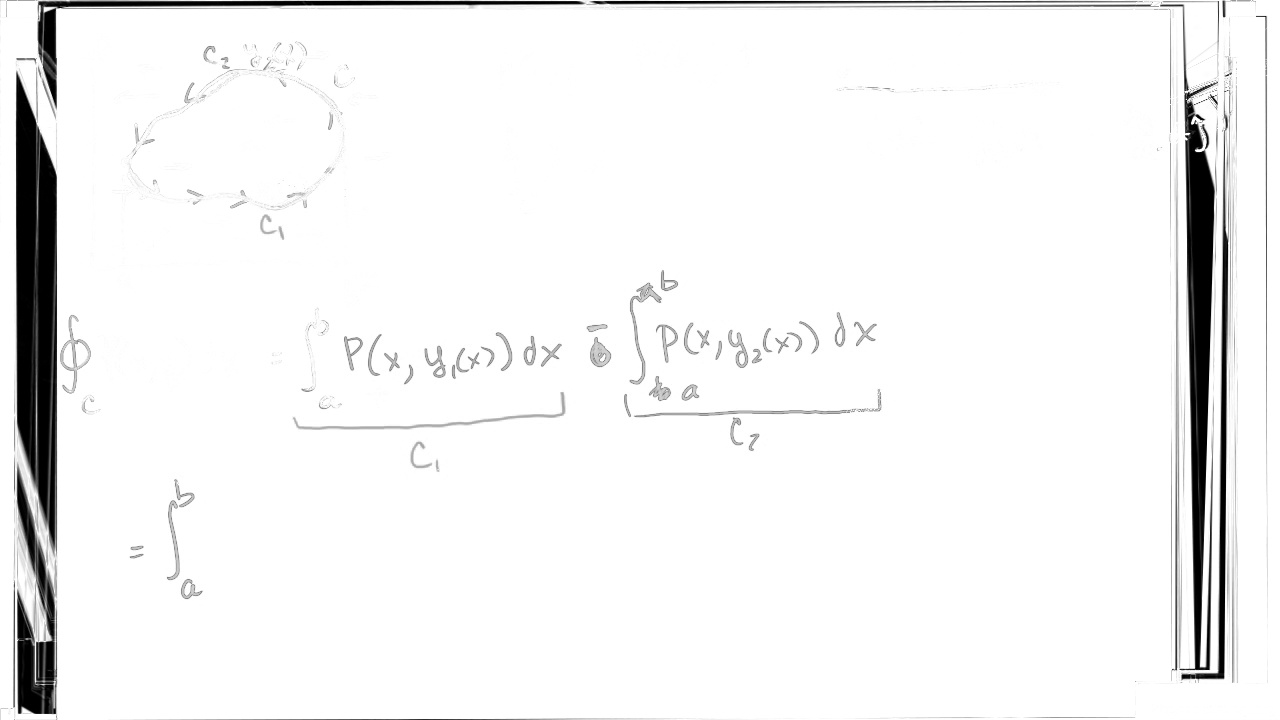 C₂ y₂(x) C
C₁
∮_C = ∫_a^b P(x, y₁(x)) dx - ∫_a^b P(x, y₂(x)) dx
C₁ C₂
= ∫_a^b